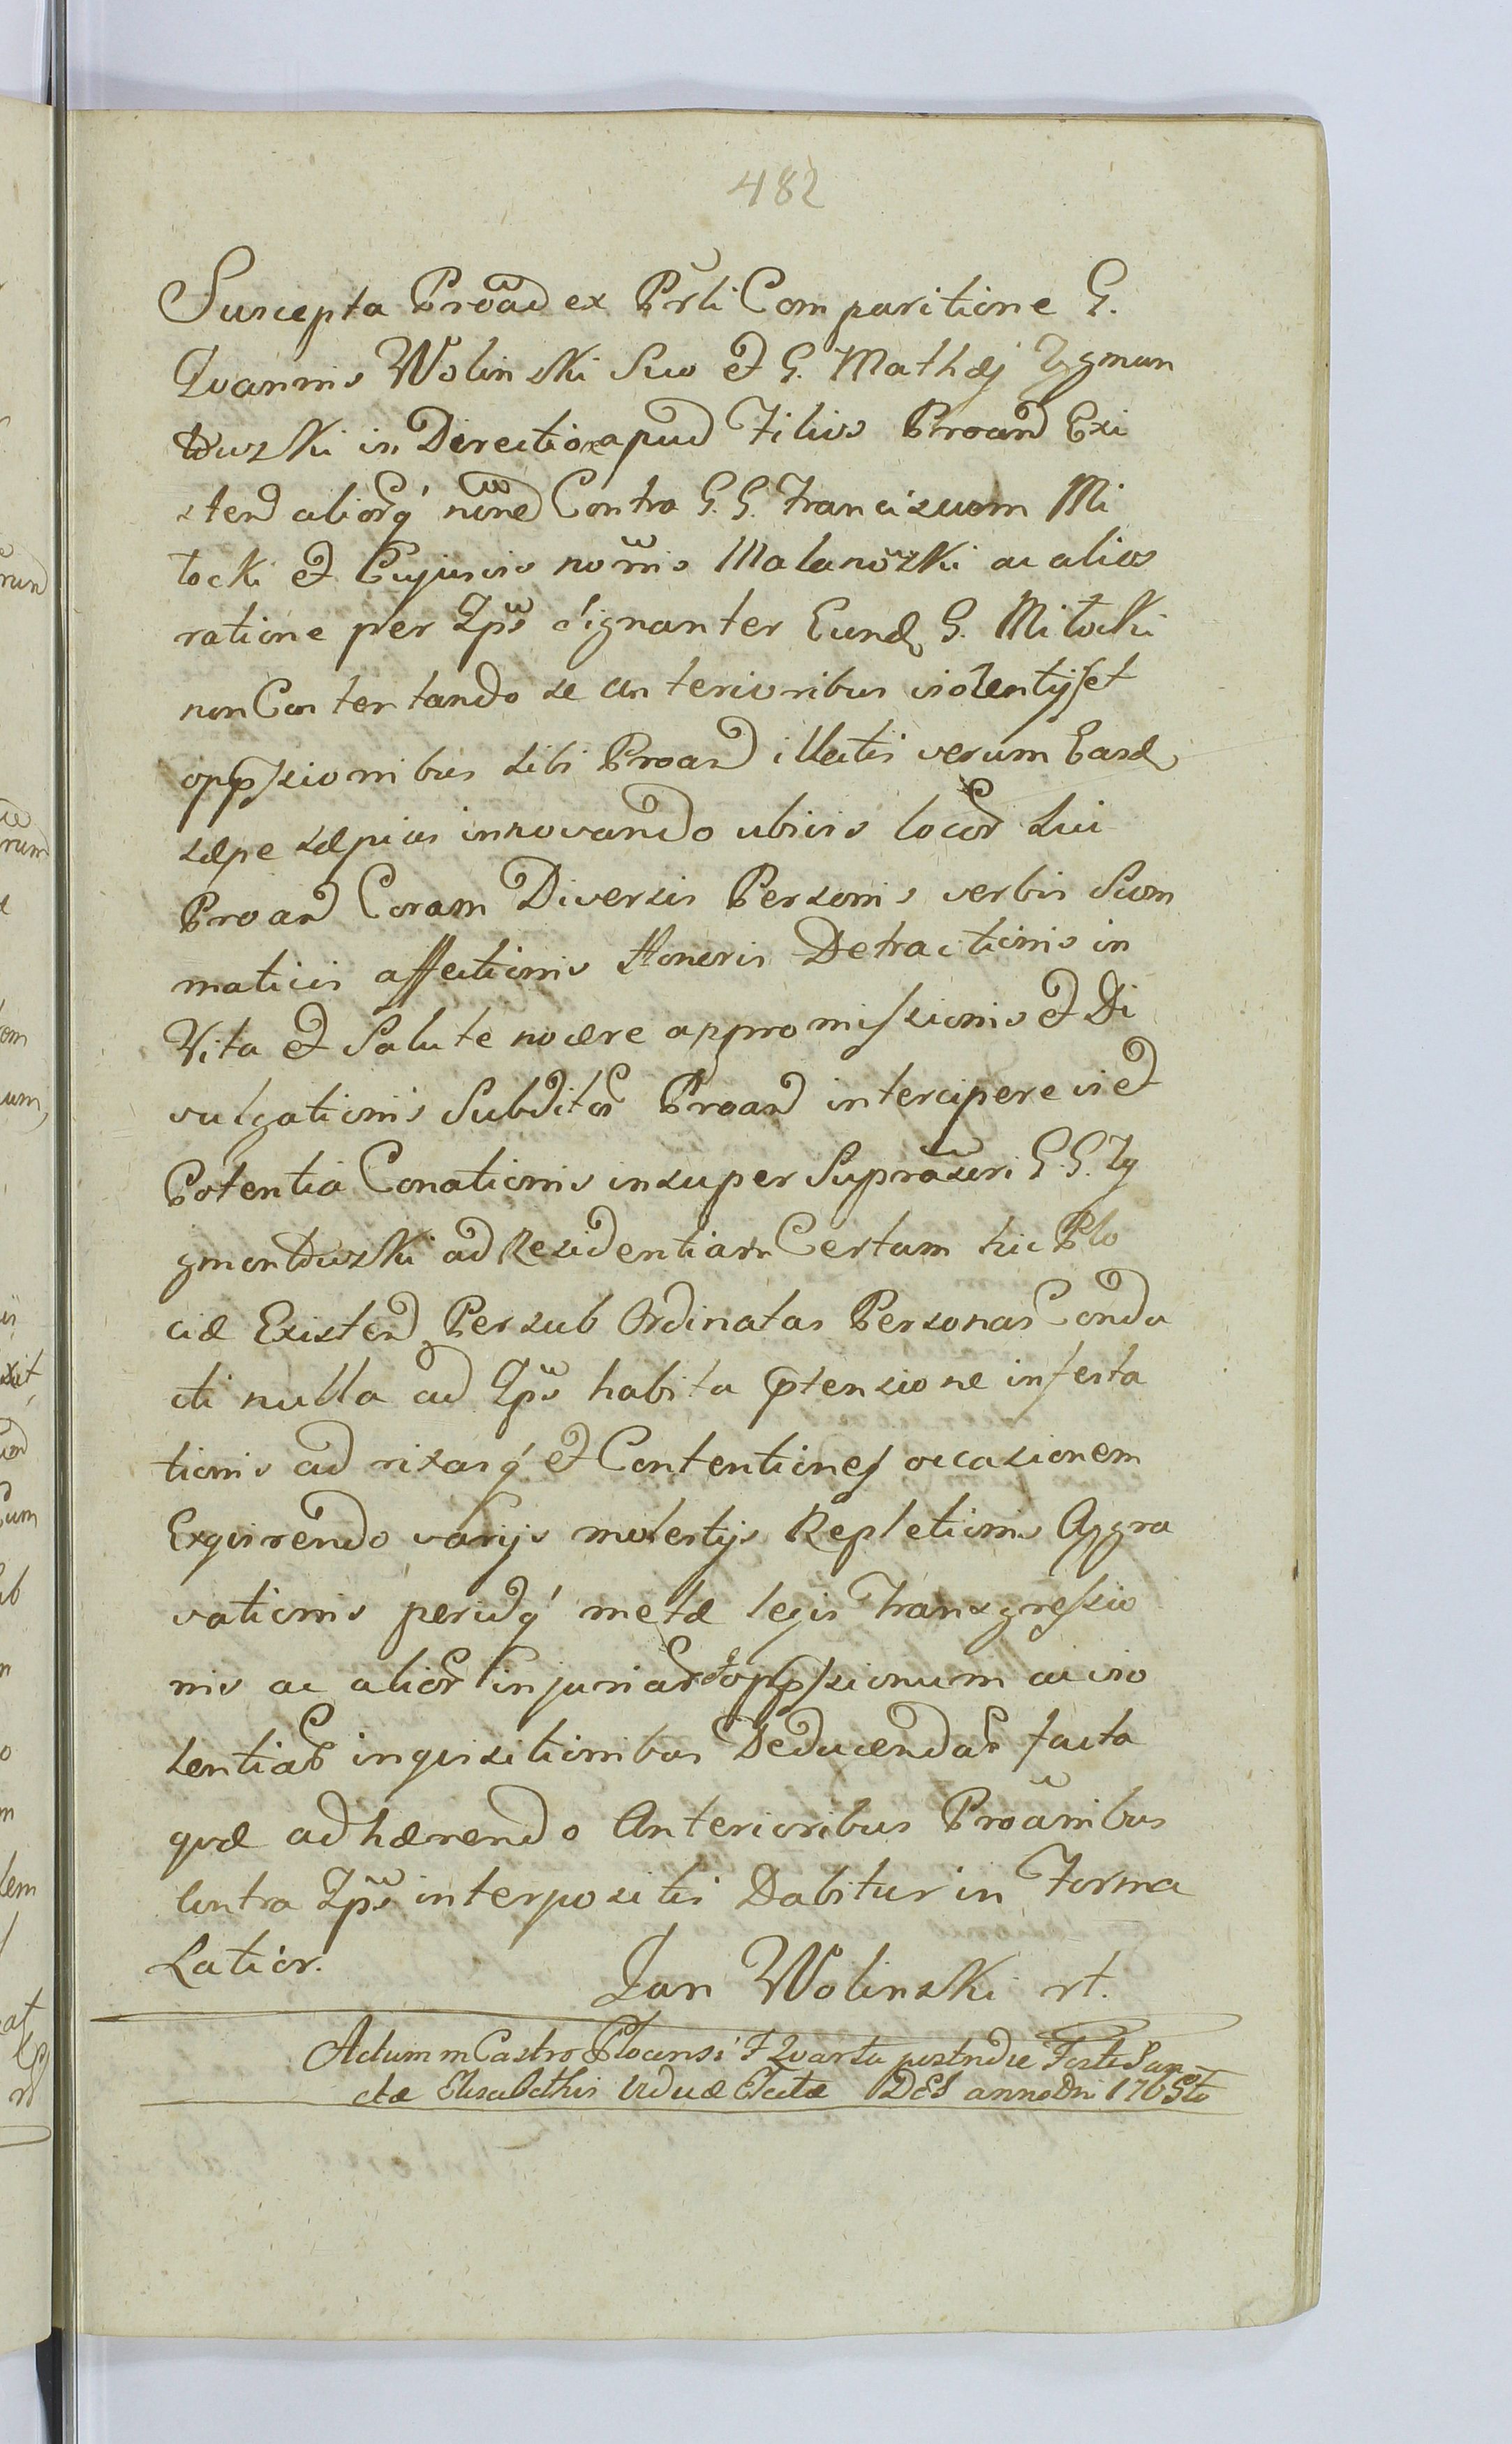 482
Suscepta Proãõ ex Prli Comparitione G.
Ioannis Wolinski Suo et G. Mathæj Zygmun
towski in Directione apud Filios Proand Exi
stend aliorq́ nõne Contra G. G. Franciscum Mi
tocki et Cujusvis nom̃is Malanowski ac alios
ratione per Ip̃s signanter Eund G. Mitocki
non Contentando se anterioribus violentijs et
opp̃ssionibus sibi Proand illatis verum Easd
sæpe sæpius innovando ubivis locor sui
Proand Coram Diversis Personis verbis Scom
maticis affectionis Honoris Detractionis in
Vita et Salute nocere appromissionis et Di
vulgationis Subditor Proand intercipere vi et
Potentia Conationis insuper Suprascri G. G. Zy
gmontowski ad Residentiam Certam hic Plo
ciæ Existend Per sub Ordinatas Personas Condu
cti nulla ad Ip̃s habita p̃tensione infesta
tionis ad rixasq́ et Contentiones occasionem
Exquirendo varijs molestijs Repletionis Aggra
vationis periculq́ metæ legis Transgressio
nis ac alior injuriar et opp̃ssionum ac vio
lentiar inquisitionibus Deducendar facta
quæ adhærendo Anterioribus Proãnibus
Contra Ip̃s interpositis Dabitur in Forma
Latior.
Jan Wolinski rt.
Actum in Castro Plocensi F Quarta postridie Festi San
ctæ Elisabethis Viduæ Electæ DEI anno Dni 176Sto